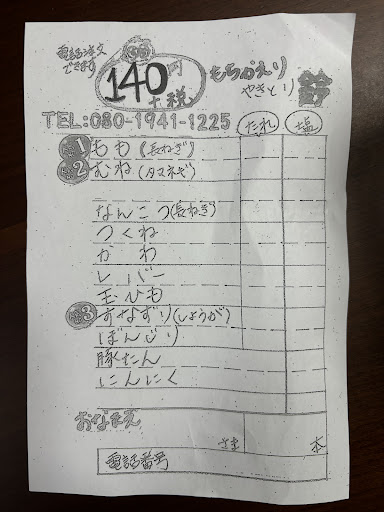 電話注文
できます
140円
+税
もちかえり
やきとり
鈴
TEL:080-1941-1225
たれ 塩
1 もも(長ねぎ)
2 むね(タマネギ)
なんこつ(長ねぎ)
つくね
かわ
レバー
玉ひも
3 すなずり(しょうが)
ぼんじり
豚たん
にんにく
おなまえ
さま 本
電話番号